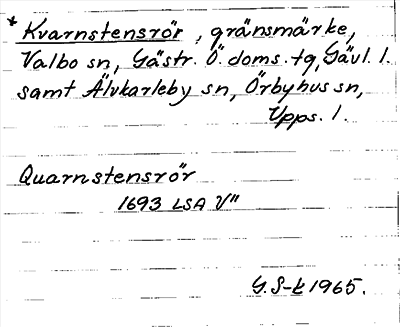 * Kvarnstensrör, gränsmärke,
Valbo sn, Gästr. Ö. doms. tg, Gävl. l.
samt Älvkarleby sn, Örbyhus sn,
Upps. l.
Quarnstensrör
1693 LSA V"
G. S-k 1965.